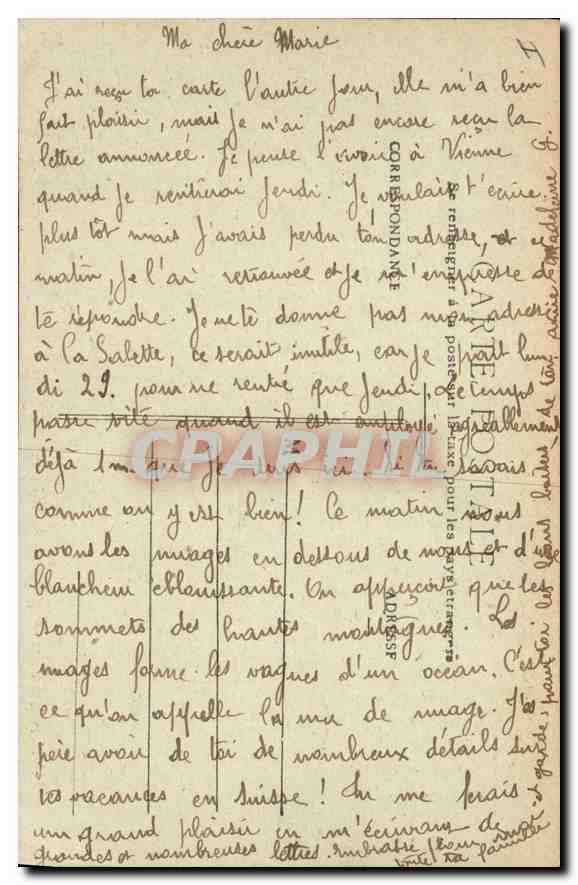 Ma chère Marie
I
J'ai reçu ta carte l'autre jour, elle m'a bien
fait plaisir, mais je n'ai pas encore reçu la
lettre annoncée. Je pense l'avoir à Vienne
quand je rentrerai Jeudi. Je voulais t'écrire
plus tôt mais j'avais perdu ton adresse, et ce
matin, je l'ai retrouvée et je m'empresse de
te répondre. Je ne te donne pas mon adresse
à la Salette, ce serait inutile, car je pait lun
di 29. pour ne rentré que Jeudi. Le temps
passe vite quand il est employé agréablement
déjà 1 m. que je suis ici. Si tu savais
comme on y est bien! Ce matin nous
avons les nuages en dessous de nous et d'une
blancheur éblouissante. On apperçoit que les
sommets des hautes montagnes. Les
nuages forme les vagues d'un océan. C'est
ce qu'on appelle la mer de nuage. J'es
père avoir de toi de nombreux détails sur
tes vacances en Suisse! Tu me ferais
un grand plaisir en m'écrivant de
grandes et nombreuses lettres. Embrasse pour moi
toute ta famille
et garde, pour toi les bons baisers de ton amie Madeleine G.
CARTE POSTALE
Se renseigner à la poste sur la taxe pour les pays étrangers
CORRESPONDANCE
ADRESSE
CPAPHIL